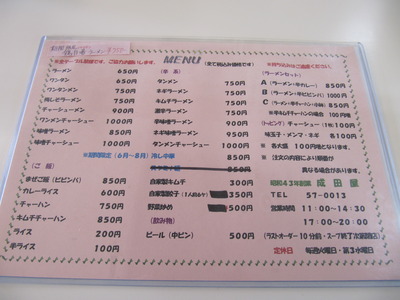 MENU
(全て税込み価格です)
ラーメン 650円
ワンタン 650円
ワンタンメン 750円
チャーシューメン 900円
ワンタンチャーシュー 1000円
味噌ラーメン 850円
味噌チャーシュー 1100円
タンメン 750円
ネギラーメン 750円
キムチラーメン 750円
辛味ラーメン 750円
辛ネギラーメン 850円
辛味噌ラーメン 900円
ネギ味噌ラーメン 950円
タンメンチャーシュー 1000円
※期間限定(6月〜8月)冷し中華 850円
(ご飯)
まぜご飯(ビビンバ) 850円
カレーライス 600円
チャーハン 750円
キムチチャーハン 850円
ライス 200円
半ライス 100円
自家製キムチ 300円
自家製餃子 350円
野菜炒め 500円
(飲み物)
ビール(中ビン) 500円
(ラーメンセット)
A (ラーメン・半カレー) 850円
B (ラーメン・半ビビンバ) 1000円
(トッピング) チャーシュー 100円
味玉子・メンマ・ネギ 100円
※ 各大盛 100円増となります。
※ 注文の内容により順番が
異なる場合があります。
昭和43年創業 成田屋
TEL 57-0013
営業時間 11:00〜14:30
17:00〜20:00
定休日 毎週火曜日・第3水曜日